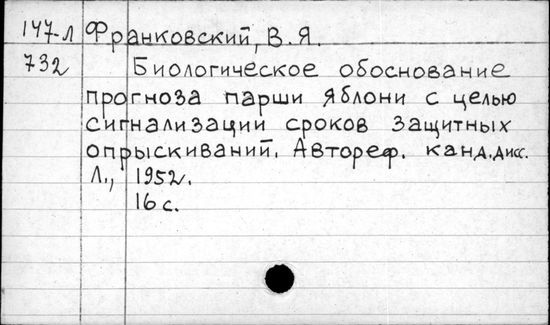 147-л Франковский, В.Я.
732 Биологическое обоснование
прогноза парши яблони с целью
сигнализации сроков защитных
опрыскиваний. Автореф. канд.дисс.
Л., 1952.
16 с.